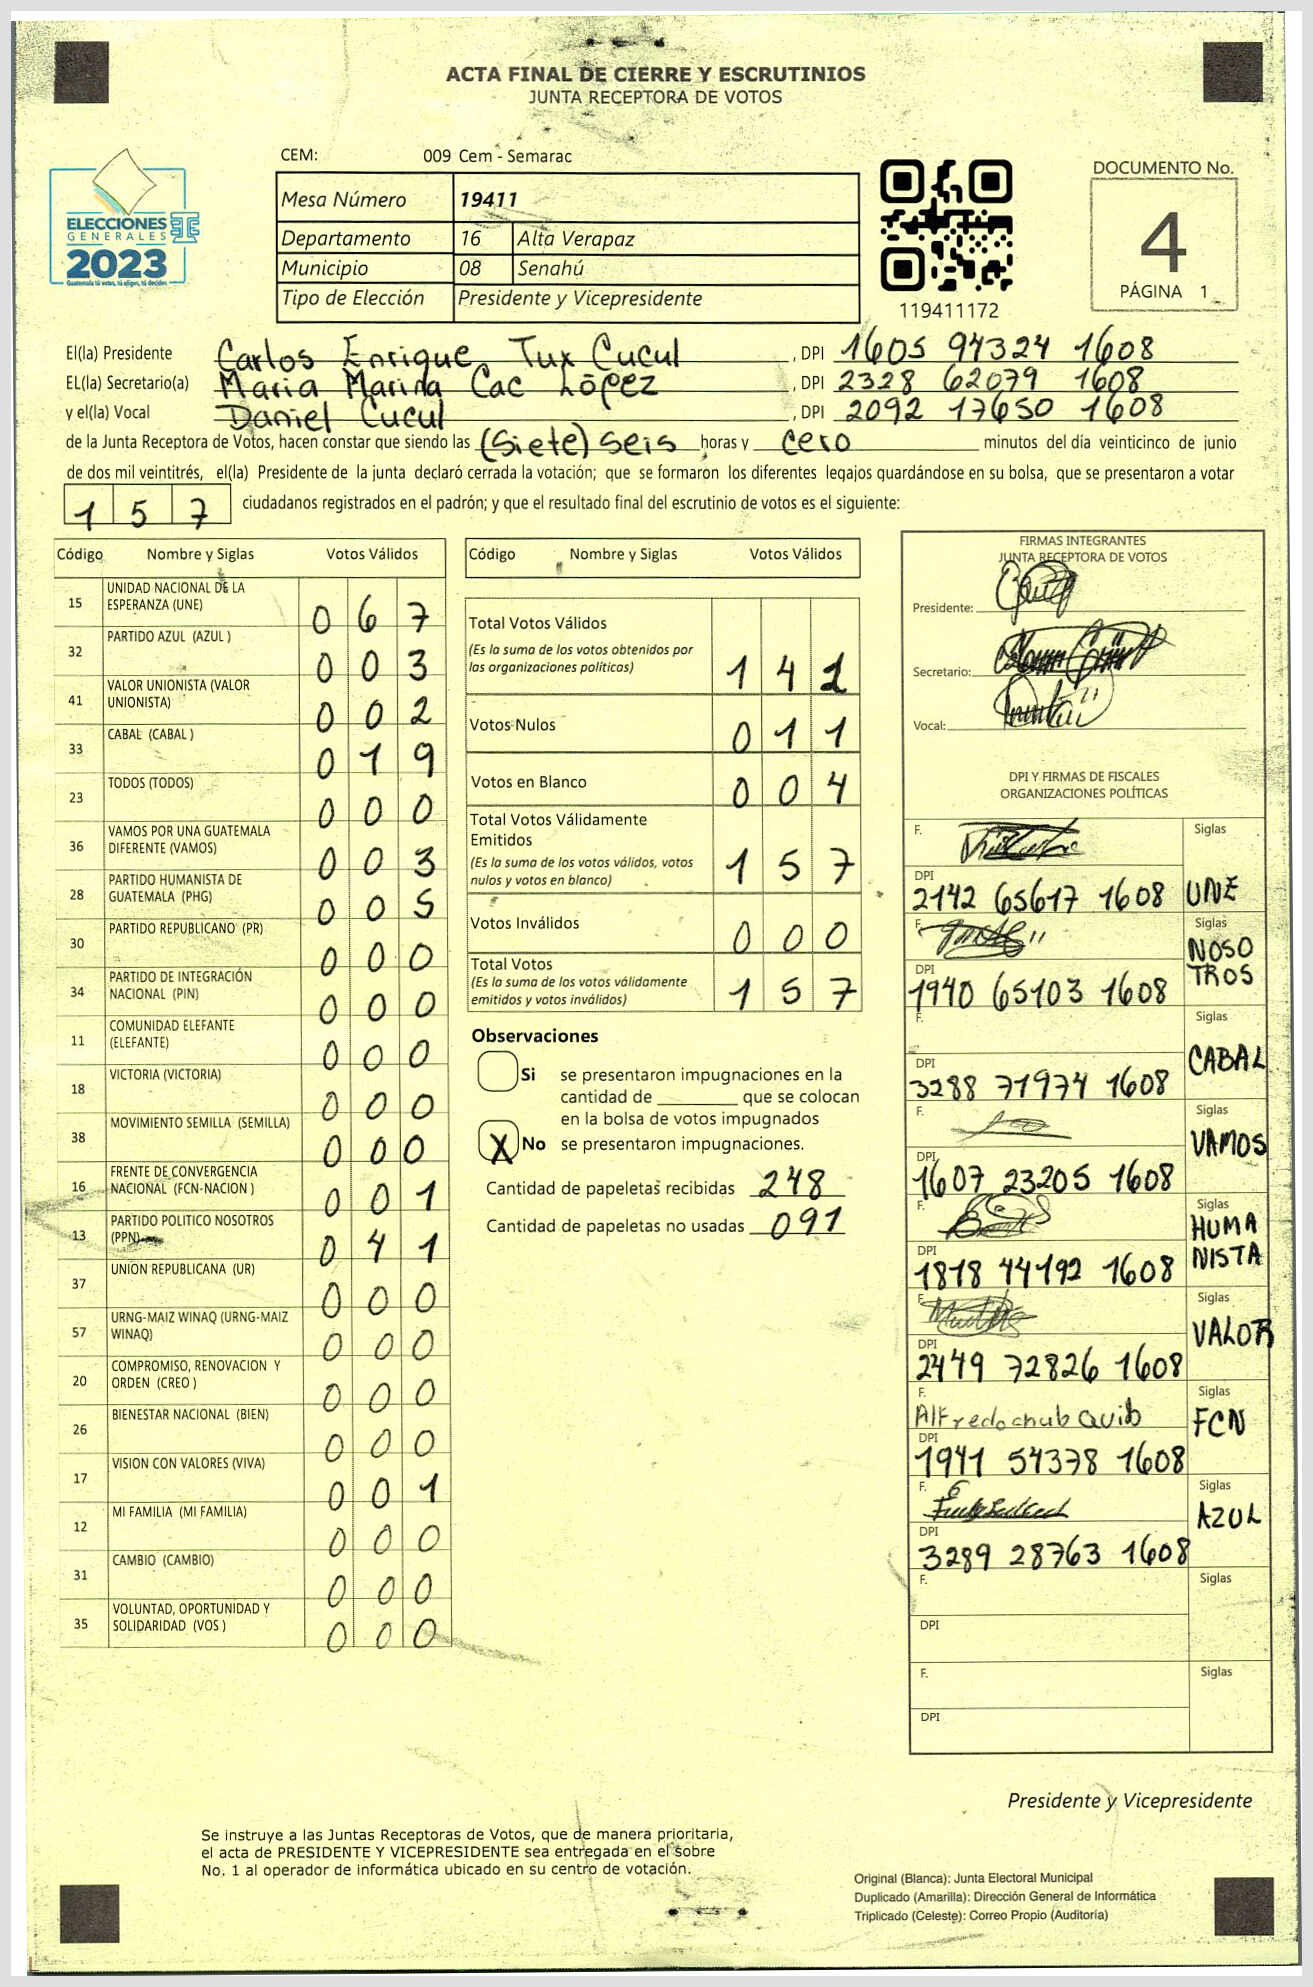 ACTA FINAL DE CIERRE Y ESCRUTINIOS
JUNTA RECEPTORA DE VOTOS
ELECCIONES
GENERALES
2023
Guatemala tú votas, tú eliges, tú decides
CEM: 009 Cem - Semarac
Mesa Número 19411
Departamento 16 Alta Verapaz
Municipio 08 Senahú
Tipo de Elección Presidente y Vicepresidente
119411172
DOCUMENTO No.
4
PÁGINA 1
El(la) Presidente Carlos Enrique Tux Cucul , DPI 1605 94324 1608
EL(la) Secretario(a) Maria Marina Cac López , DPI 2328 62079 1608
y el(la) Vocal Daniel Cucul , DPI 2092 17650 1608
de la Junta Receptora de Votos, hacen constar que siendo las (Siete) seis horas y cero minutos del día veinticinco de junio
de dos mil veintitrés, el(la) Presidente de la junta declaró cerrada la votación; que se formaron los diferentes legajos quardándose en su bolsa, que se presentaron a votar
157 ciudadanos registrados en el padrón; y que el resultado final del escrutinio de votos es el siguiente:
Código Nombre y Siglas Votos Válidos
15 UNIDAD NACIONAL DE LA
ESPERANZA (UNE) 067
32 PARTIDO AZUL (AZUL ) 003
41 VALOR UNIONISTA (VALOR
UNIONISTA) 002
33 CABAL (CABAL ) 019
23 TODOS (TODOS) 000
36 VAMOS POR UNA GUATEMALA
DIFERENTE (VAMOS) 003
28 PARTIDO HUMANISTA DE
GUATEMALA (PHG) 005
30 PARTIDO REPUBLICANO (PR) 000
34 PARTIDO DE INTEGRACIÓN
NACIONAL (PIN) 000
11 COMUNIDAD ELEFANTE
(ELEFANTE) 000
18 VICTORIA (VICTORIA) 000
38 MOVIMIENTO SEMILLA (SEMILLA) 000
16 FRENTE DE CONVERGENCIA
NACIONAL (FCN-NACION ) 001
13 PARTIDO POLITICO NOSOTROS
(PPN) 041
37 UNION REPUBLICANA (UR) 000
57 URNG-MAIZ WINAQ (URNG-MAIZ
WINAQ) 000
20 COMPROMISO, RENOVACION Y
ORDEN (CREO ) 000
26 BIENESTAR NACIONAL (BIEN) 000
17 VISION CON VALORES (VIVA) 001
12 MI FAMILIA (MI FAMILIA) 000
31 CAMBIO (CAMBIO) 000
35 VOLUNTAD, OPORTUNIDAD Y
SOLIDARIDAD (VOS ) 000
Código Nombre y Siglas Votos Válidos
Total Votos Válidos
(Es la suma de los votos obtenidos por
las organizaciones políticas) 141
Votos Nulos 011
Votos en Blanco 004
Total Votos Válidamente
Emitidos
(Es la suma de los votos válidos, votos
nulos y votos en blanco) 157
Votos Inválidos 000
Total Votos
(Es la suma de los votos válidamente
emitidos y votos inválidos) 157
Observaciones
Si se presentaron impugnaciones en la
cantidad de ________ que se colocan
en la bolsa de votos impugnados
X No se presentaron impugnaciones.
Cantidad de papeletas recibidas 248
Cantidad de papeletas no usadas 091
FIRMAS INTEGRANTES
JUNTA RECEPTORA DE VOTOS
Presidente:
Secretario:
Vocal:
DPI Y FIRMAS DE FISCALES
ORGANIZACIONES POLÍTICAS
F. Siglas
DPI
2142 65617 1608 UNE
F. Siglas
NOSO
TROS
DPI
1940 65103 1608
F. Siglas
CABAL
DPI
3288 71974 1608
F. Siglas
VAMOS
DPI
1607 23205 1608
F. Siglas
HUMA
NISTA
DPI
1818 44192 1608
F. Siglas
VALOR
DPI
2449 72826 1608
F. Siglas
Alfredo chub FCN
DPI
1941 54378 1608
F. Siglas
AZUL
DPI
3289 28763 1608
F. Siglas
DPI
F. Siglas
DPI
Presidente y Vicepresidente
Se instruye a las Juntas Receptoras de Votos, que de manera prioritaria,
el acta de PRESIDENTE Y VICEPRESIDENTE sea entregada en el sobre
No. 1 al operador de informática ubicado en su centro de votación.
Original (Blanca): Junta Electoral Municipal
Duplicado (Amarilla): Dirección General de Informática
Triplicado (Celeste): Correo Propio (Auditoría)